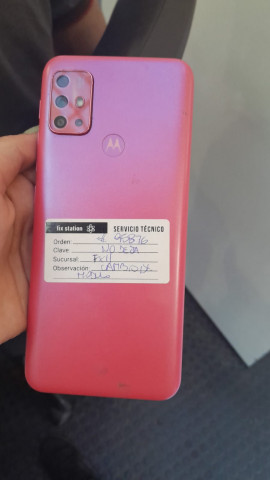 fix station SERVICIO TÉCNICO
Orden:
Clave: NO DEJA
Sucursal
Observación CAMBIO DE
MODULO